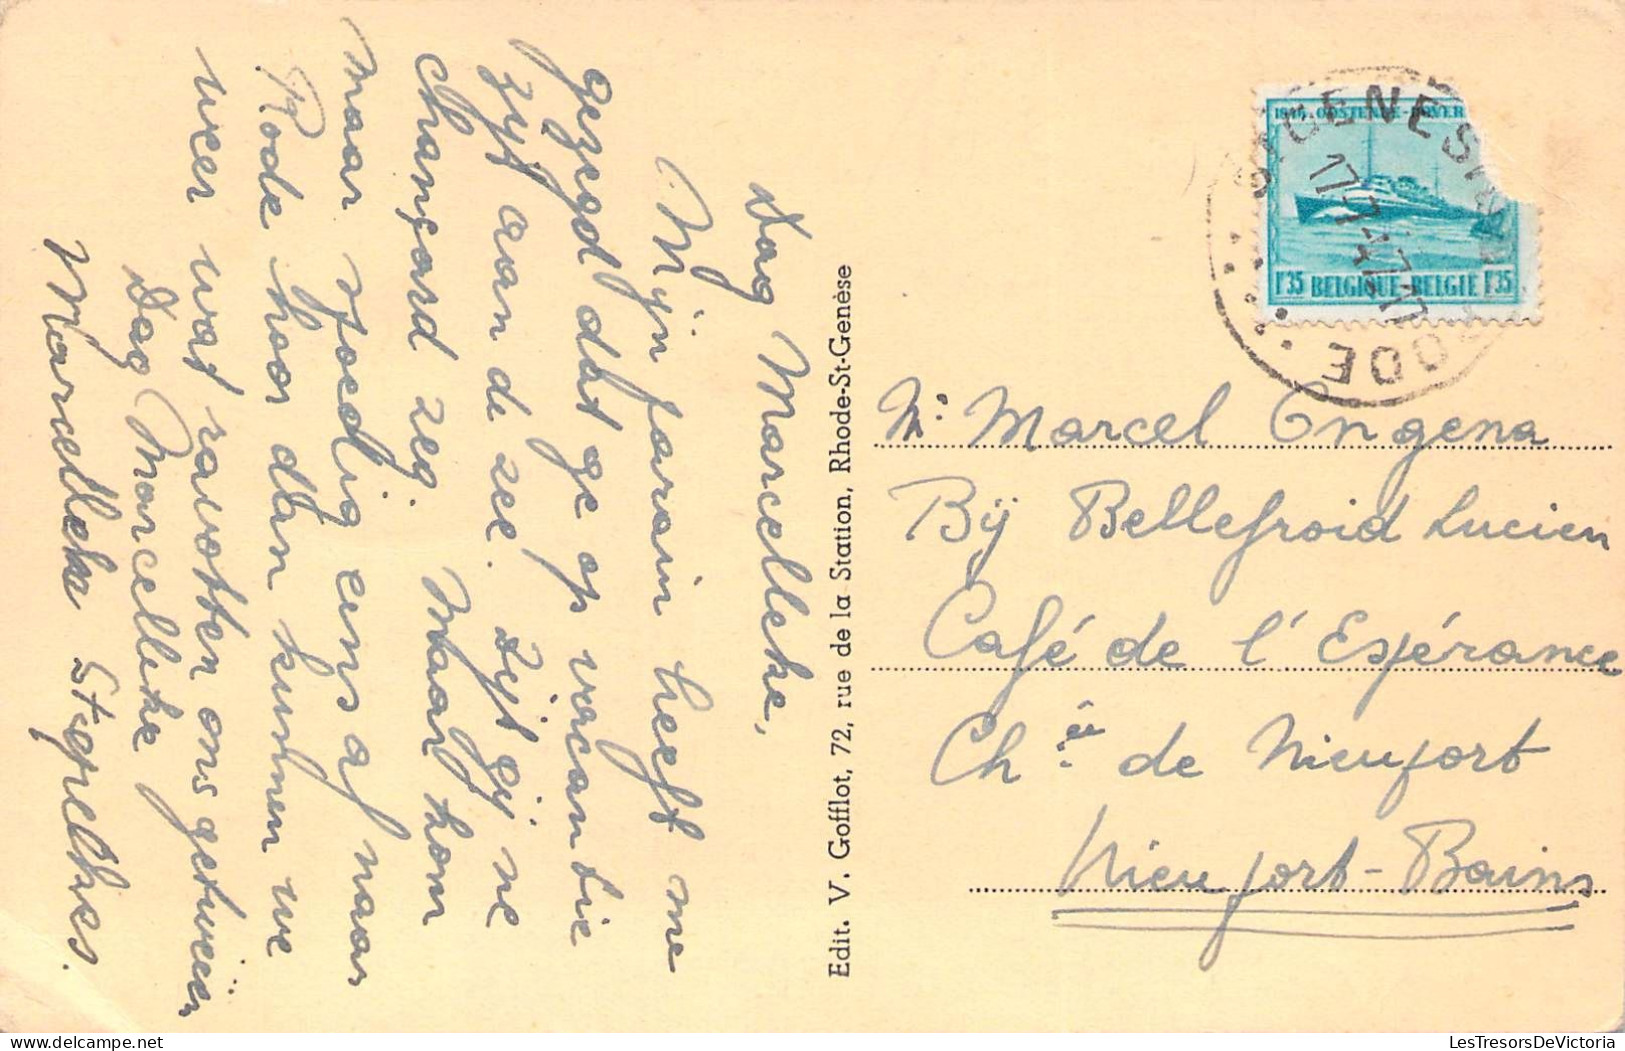 Dag Marcelleke,
Mijn parain heeft me
gezegd dat ge op vacantie
zyt aan de zee. Zijt gij ne
chançard zeg. Maar kom
maar spoedig eens af naar
Rode hoor dan kunnen we
weer wat ravotten ons getweeën
Dag Marcelleke
Marcelleke Sterckx.
Edit. V. Gofflot, 72, rue de la Station, Rhode-St-Genèse
1946 OOSTENDE-DOVER
1F35 BELGIQUE-BELGIE 1F35
GENES
17-7-47
ODE
Mr. Marcel Ongena
Bÿ Bellefroid Lucien
Café de l'Espérance
Chée de Nieuport
Nieuport-Bains
LesTresorsDeVictoria